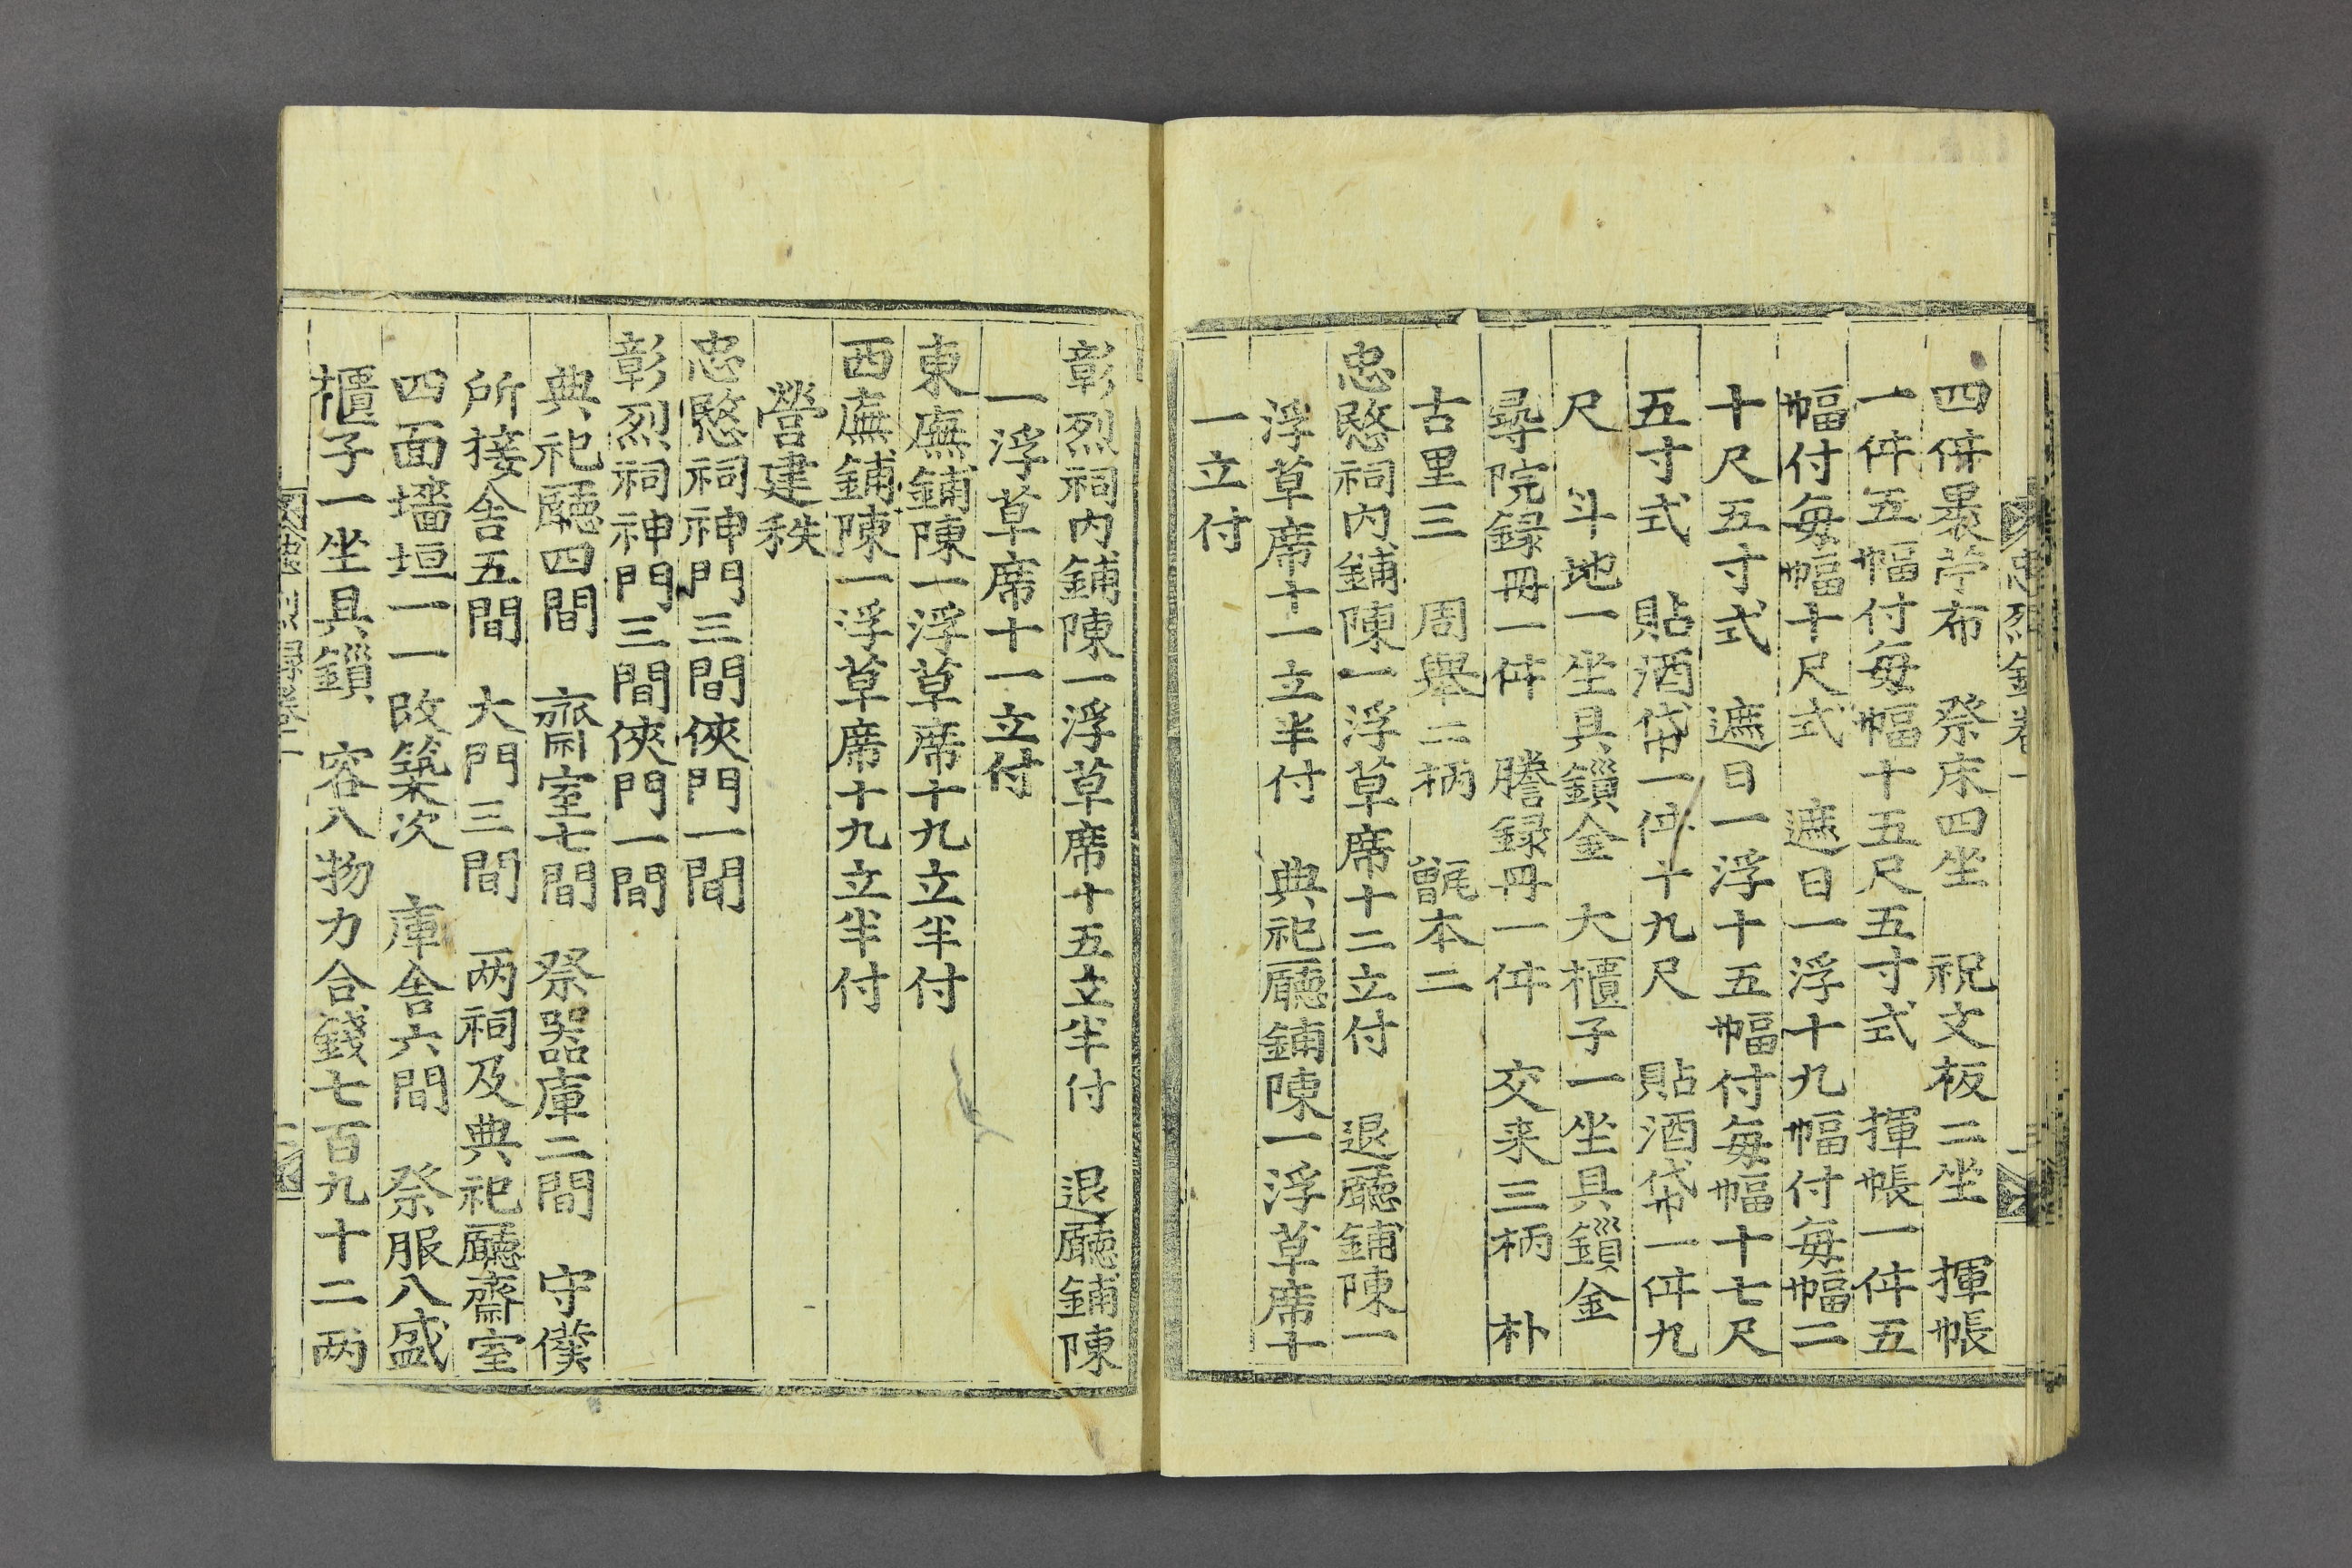 四件暴苧布　祭床四坐　祝文板二坐　揮帳
一件五幅付每幅十五尺五寸式　揮帳一件五
幅付每幅十尺式　遮日一浮十九幅付每幅二
十尺五寸式　遮日一浮十五幅付每幅十七尺
五寸式　貼酒帒一件十九尺　貼酒帒一件九
尺　斗地一坐具鎻金　大櫃子一坐具鎻金
尋院録冊一件　謄録冊一件　交来三柄　朴
古里三　周舉二柄　甑本二
忠愍祠内鋪陳一浮草席十二立付　退廳鋪陳一
浮草席十一立半付　典祀廳鋪陳一浮草席十
一立付
彰烈祠内鋪陳一浮草席十五立半付　退廳鋪陳
一浮草席十一立付
東廡鋪陳一浮草席十九立半付
西廡鋪陳一浮草席十九立半付
營建秩
忠愍祠神門三間俠門一間
彰烈祠神門三間俠門一間
典祀廳四間　齋室七間　祭器庫二間　守僕
所接舎五間　大門三間　两祠及典祀廳齋室
四面墻垣一一改築次　庫舎六間　祭服八盛
櫃子一坐具鎻　容八物力合錢七百九十二两